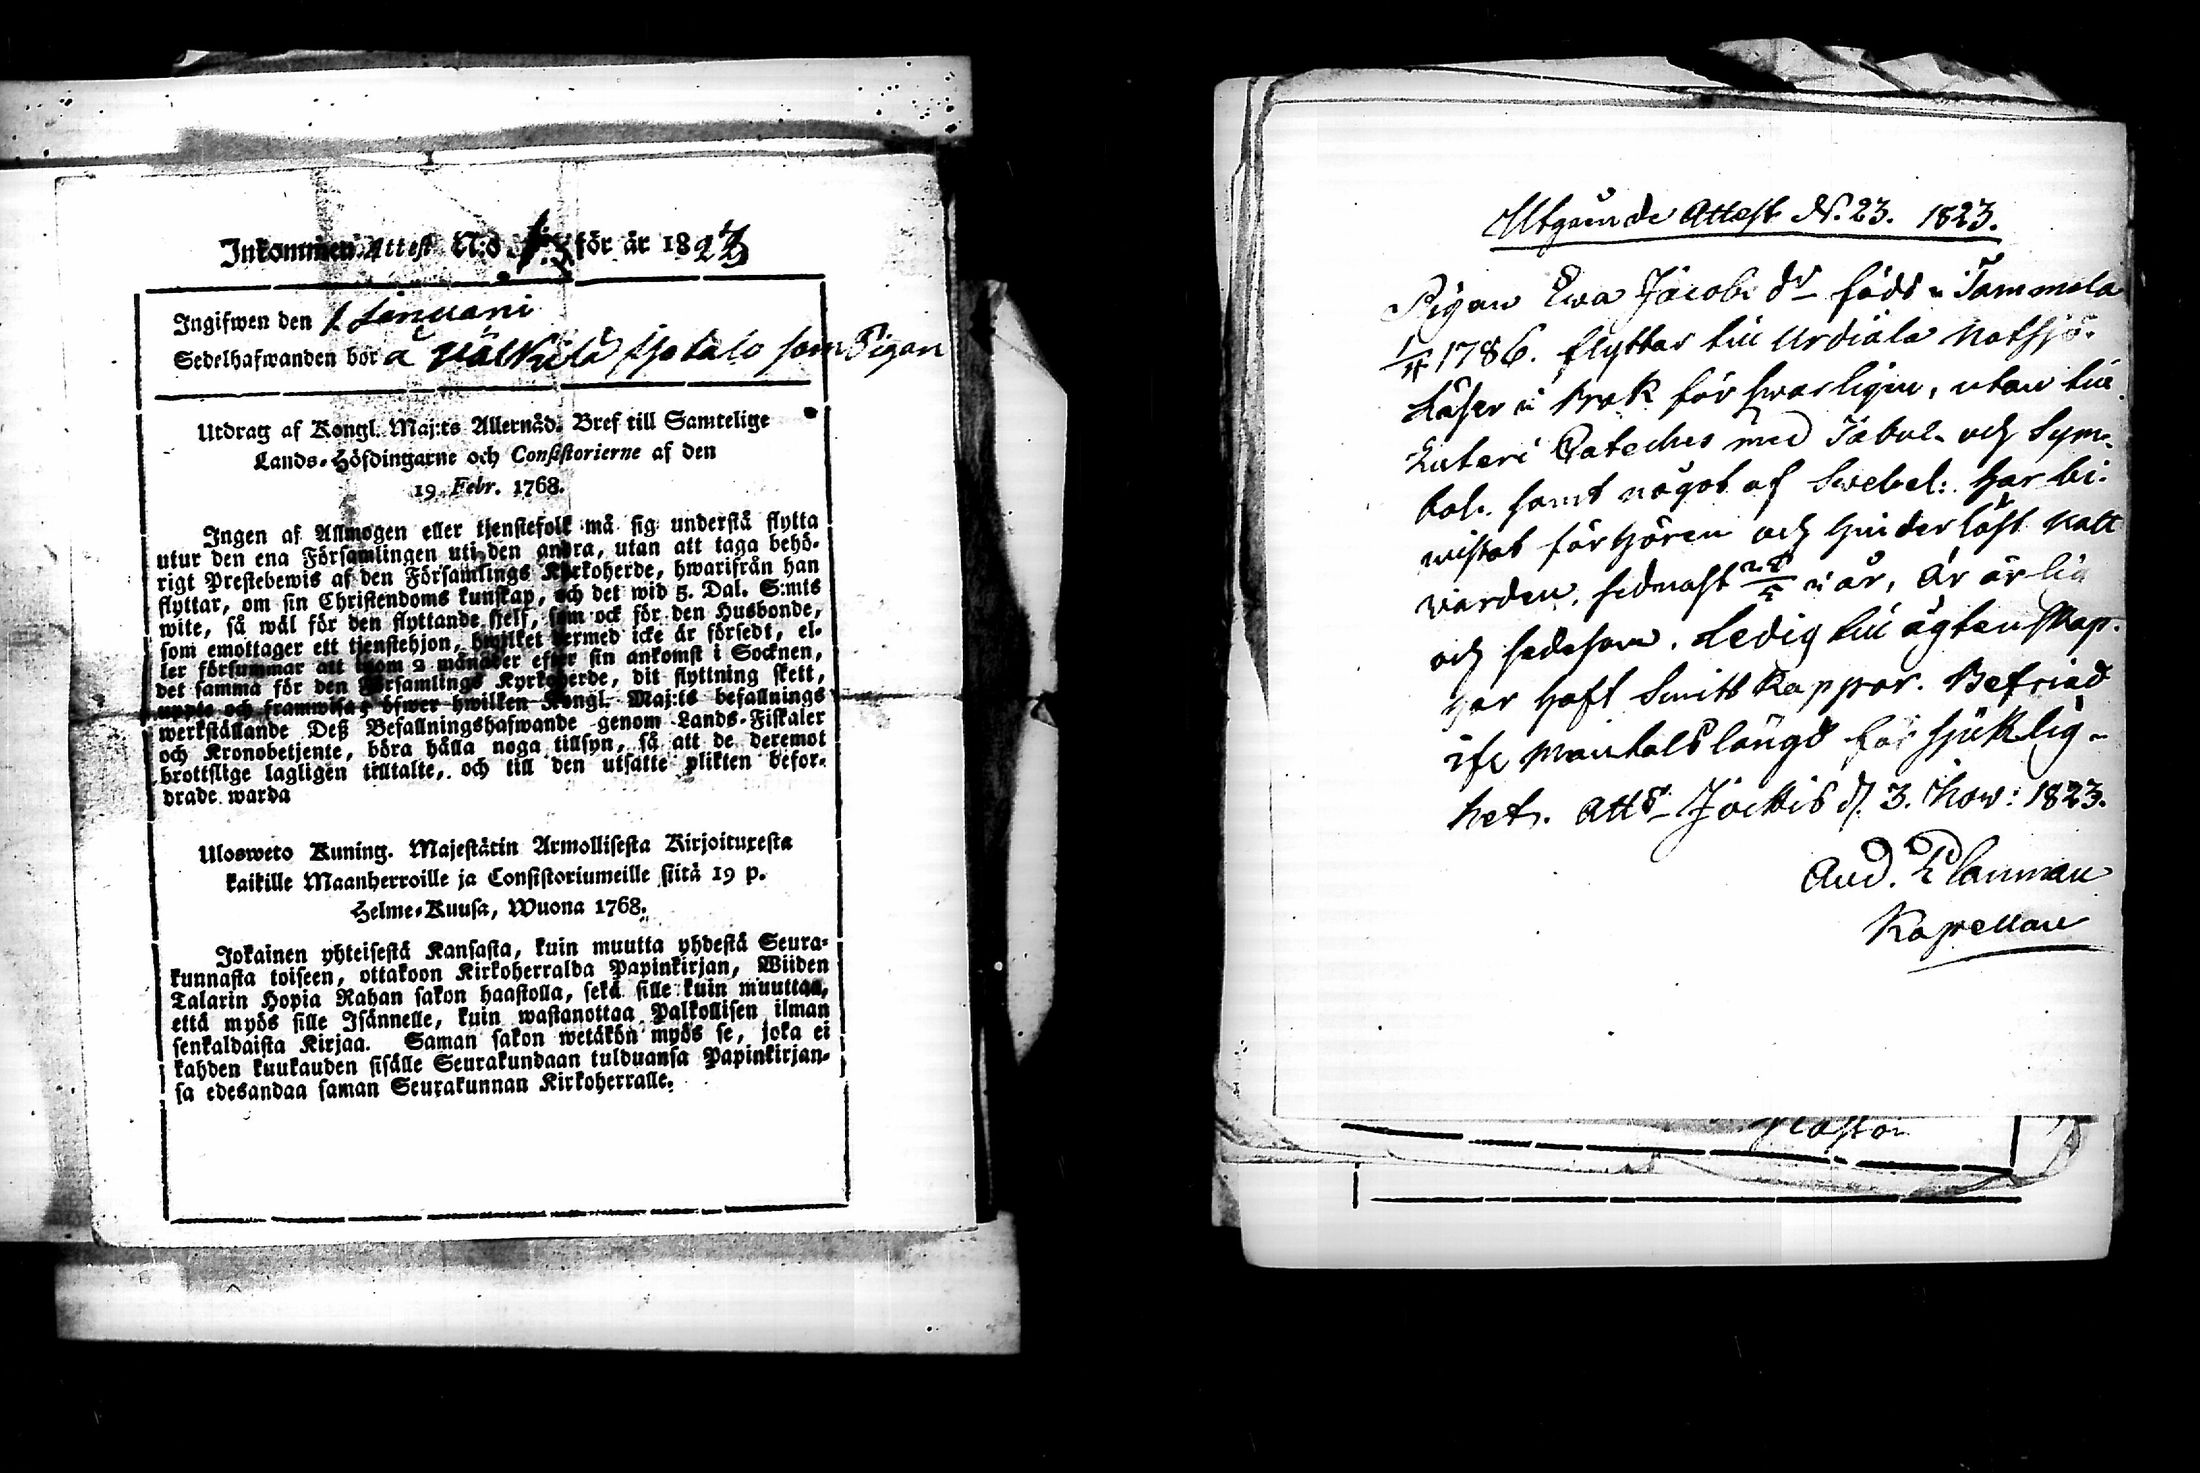 Inkommen Attest N:o för år 1823
Ingifwen den 1 Januari
Sedelhafwanden bor å som Pigan
Utdrag af Kongl. Maj:ts Allernåd. Bref till Samtelige
Lands-Höfdingarne och Consistorierne af den
19 Febr. 1768.
Ingen af Allmogen eller tjenstefolk må sig understå flytta
utur den ena Församlingen uti den andra, utan att taga behö-
rigt Prestebewis af den Församlings Kyrkoherde, hwarifrån han
flyttar, om sin Christendoms kunskap, och det wid 5. Dal. S:mts
wite, så wäl för den flyttande sjelf, som ock för den Husbonde,
som emottager ett tjenstehjon, hwilket dermed icke är försedt, el-
ler försummar att inom 2 månader efter sin ankomst i Socknen,
det samma för den Församlings Kyrkoherde, dit flyttning skett,
uppte och framwisa; öfwer hwilken Kongl. Maj:ts befallnings
werkställande Deß Befallningshafwande genom Lands-Fiskaler
och Kronobetjente, böra hålla noga tillsyn, så att de deremot
brottslige lagligen tilltalte, och till den utsatte plikten befor-
drade warda
Ulosweto Kuning. Majestätin Armollisesta Kirjoituxesta
kaikille Maanherroille ja Consistoriumeille siitä 19 p.
Helme-Kuusa, Wuona 1768.
Jokainen yhteisestä Kansasta, kuin muutta yhdestä Seura-
kunnasta toiseen, ottakoon Kirkoherralda Papinkirjan, Wiiden
Talarin Hopia Rahan sakon haastolla, sekä sille kuin muuttaa,
että myös sille Isännelle, kuin wastanottaa Palkollisen ilman
senkaldaista Kirjaa. Saman sakon wetäkön myös se, joka ei
kahden kuukauden sisälle Seurakundaan tulduansa Papinkirjan-
sa edesandaa saman Seurakunnan Kirkoherralle.
Utgående Attest N. 23. 1823.
Pigan Ewa Jacobs dr född i Tammela
1786. flyttar till Urdiala Natsjö.
Läser i Bok försvarligen, utan till
Luteri Cateches med Tabul. och Sym-
bol. samt något af Swebel: har bi-
wistat förhören och hinderlöst Natt
varden, sednast i år, är ärlig
och sedesam. Ledig till ägtenskap.
har haft Smittkoppor. Befriad
ifr Mantalslängd för sjuklig-
het. Attd Jockis d. 3. Now: 1823.
And. Planman
Kapellan